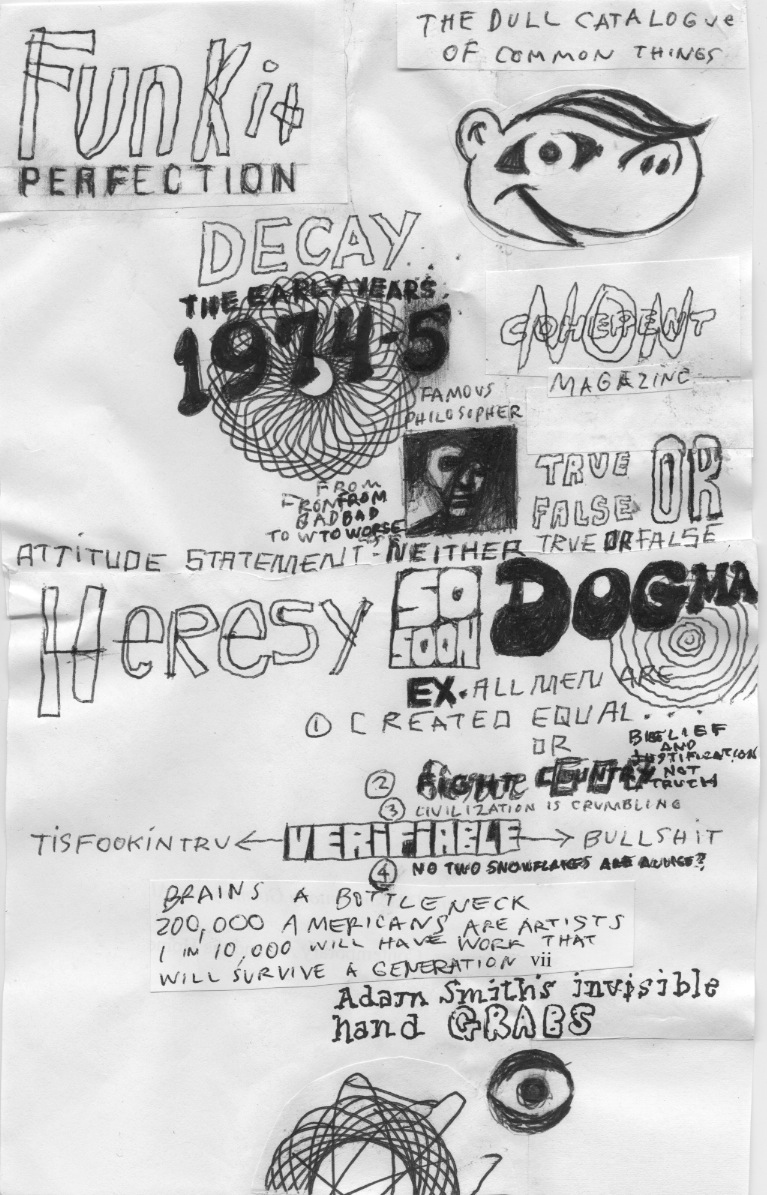 THE DULL CATALOGUe
OF COMMON THINGS
FUnKit
PERFECTION
DECAY
THE EARLY YEARS
1974-5
COHERENT
NON
MAGAZINE
FAMOUS
PHILOSOPHER
TRUE
FALSE
OR
TRUE OR FALSE
FROM
FROM FROM
BAD BAD
TO W TO WORSE
ATTiTUDE STATEMENT- NEITHER
HeReSY
SO
SOON
DOGMA
EX. ALL MEN ARE
① CREATED EQUAL...
OR
BELIEF
AND
JUSTIFICATION
NOT
TRUTH
②
COUNTRY
③ CIVILIZATION IS CRUMBLING
TiSFOOKINTRU
VERiFiABLE
BULLSHIT
④ NO TWO SNOWFLAKES ARE ALIKE?
BRAINS A BOTTLENECK
200,000 AMERICANS ARE ARTISTS
1 IN 10,000 WILL HAVE WORK THAT
WILL SURVIVE A GENERATION vii
Adam Smith's invisible
hand GRABS